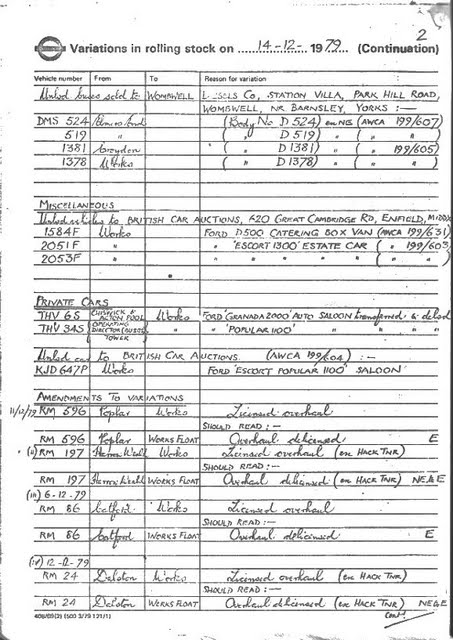 2
Variations in rolling stock on 14-12- 1979 (Continuation)
Vehicle number From To Reason for variation
Unlsd buses sold to WOMBWELL DIESELS Co, STATION VILLA, PARK HILL ROAD,
WOMBWELL, NR BARNSLEY, YORKS :—
DMS 524 (Body No D 524) (AWCA 199/607)
519 " ( " D 519) " ( " " )
1381 Croydon ( " D 1381) " ( " 199/605)
1378 Works ( " D 1378) " ( " " )
MISCELLANEOUS
Unlsd vehicles to BRITISH CAR AUCTIONS, 620 GREAT CAMBRIDGE RD, ENFIELD, MIDDX
1584F Works FORD D500 CATERING BOX VAN (AWCA 199/631)
2051F " " 'ESCORT 1300' ESTATE CAR ( " 199/603)
2053F " " " " " ( " " )
PRIVATE CARS
THV 6S CHISWICK & ACTON POOL Works FORD 'GRANADA 2000' AUTO SALOON transferred & delsd
THV 34S OPERATING DIRECTOR (BUSES) TOWER " " 'POPULAR 1100' " "
Unlsd car to BRITISH CAR AUCTIONS. (AWCA 199/604) :—
KJD 647P Works FORD 'ESCORT POPULAR 1100' SALOON
AMENDMENTS TO VARIATIONS
11/12/79 RM 596 Poplar Works Licensed overhaul
SHOULD READ :—
RM 596 Poplar WORKS FLOAT Overhaul delicensed E
(ii) RM 197 Works Licensed overhaul (ex HACK TNR)
SHOULD READ :—
RM 197 WORKS FLOAT Overhaul delicensed (ex HACK TNR) NE&E
(iii) 6-12-79
RM 86 Catford Works Licensed overhaul
SHOULD READ :—
RM 86 Catford WORKS FLOAT Overhaul delicensed E
(iv) 12-12-79
RM 24 Dalston Works Licensed overhaul (ex HACK TNR)
SHOULD READ :—
RM 24 Dalston WORKS FLOAT Overhaul delicensed (ex HACK TNR) NE&E